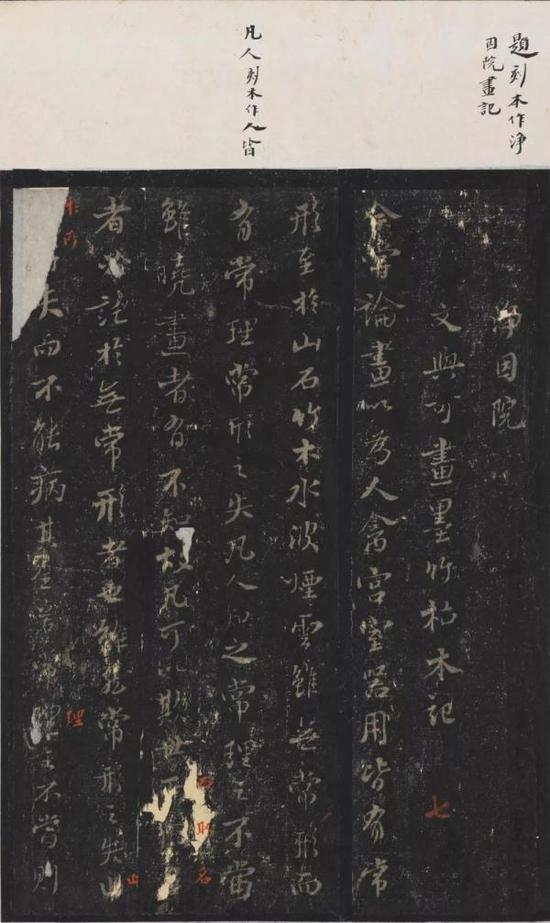 題刻木作淨
因院畫記
凡人刻木作人皆
淨因院
文與可畫墨竹枯木記
七
余嘗論畫以為人禽宮室器用皆有常
形至於山石竹木水波煙雲雖無常形而
有常理常形之失凡人知之常理之不當
雖曉畫者有不知故凡可以欺世而
取名
者必託於無常形者也雖然常形之失止
止
於所
失而不能病其全若常理之不當則
理